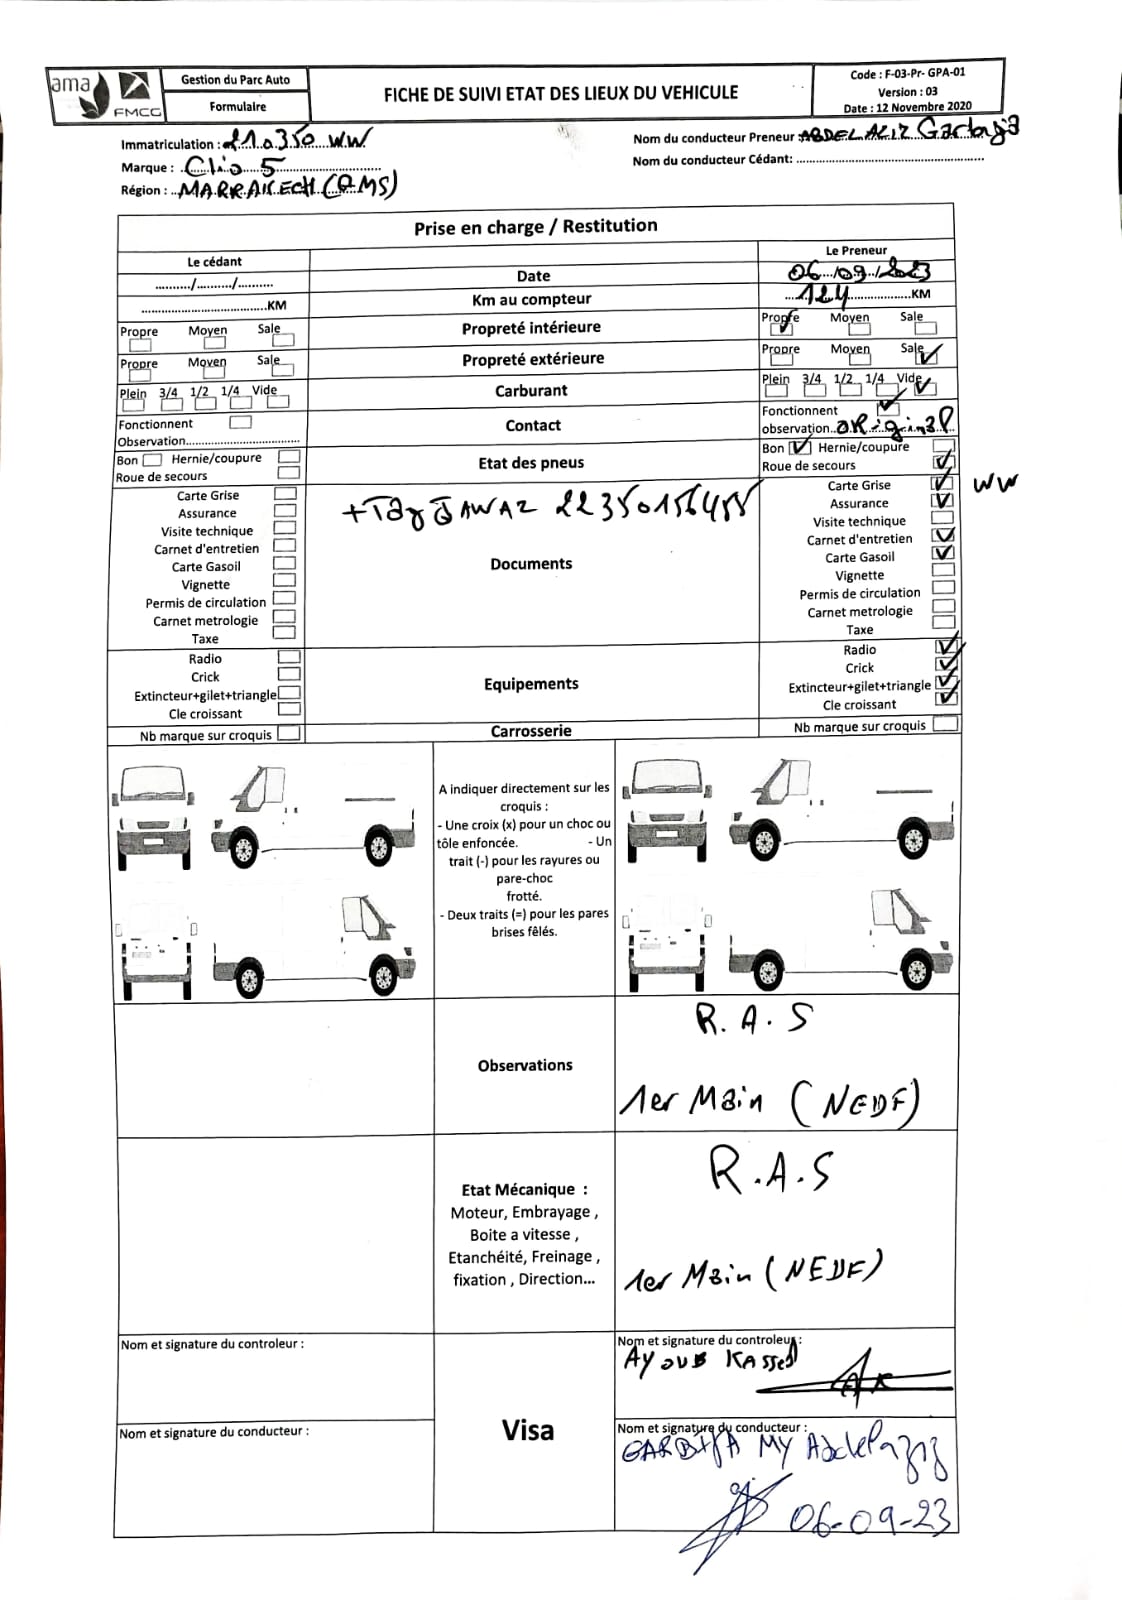 ama
FMCG
Gestion du Parc Auto
Formulaire
FICHE DE SUIVI ETAT DES LIEUX DU VEHICULE
Code : F-03-Pr- GPA-01
Version : 03
Date : 12 Novembre 2020
Immatriculation : 210350 WW
Nom du conducteur Preneur : ABDELAZIZ
Marque : Clio 5
Nom du conducteur Cédant:
Région : MARRAKECH
Prise en charge / Restitution
Le cédant
Le Preneur
........../........../..........
Date
06/09/2023
KM
Km au compteur
124 KM
Propre Moyen Sale
Propreté intérieure
Propre Moyen Sale
Propre Moyen Sale
Propreté extérieure
Propre Moyen Sale
Plein 3/4 1/2 1/4 Vide
Carburant
Plein 3/4 1/2 1/4 Vide
Fonctionnent
Observation
Contact
Fonctionnent
observation.. ORiginal
Bon Hernie/coupure
Roue de secours
Etat des pneus
Bon Hernie/coupure
Roue de secours
Carte Grise
Assurance
Visite technique
Carnet d'entretien
Carte Gasoil
Vignette
Permis de circulation
Carnet metrologie
Taxe
+Tag JAWAZ
Documents
Carte Grise WW
Assurance
Visite technique
Carnet d'entretien
Carte Gasoil
Vignette
Permis de circulation
Carnet metrologie
Taxe
Radio
Crick
Extincteur+gilet+triangle
Cle croissant
Equipements
Radio
Crick
Extincteur+gilet+triangle
Cle croissant
Nb marque sur croquis
Carrosserie
Nb marque sur croquis
A indiquer directement sur les
croquis :
- Une croix (x) pour un choc ou
tôle enfoncée. - Un
trait (-) pour les rayures ou
pare-choc
frotté.
- Deux traits (=) pour les pares
brises fêlés.
Observations
R.A.S
1er Main (NEUF)
Etat Mécanique :
Moteur, Embrayage ,
Boite a vitesse ,
Etanchéité, Freinage ,
fixation , Direction...
R.A.S
1er Main (NEUF)
Nom et signature du controleur :
Nom et signature du controleur :
AYOUB
Visa
Nom et signature du conducteur :
Nom et signature du conducteur :
MY Abdelaziz
06-09-23